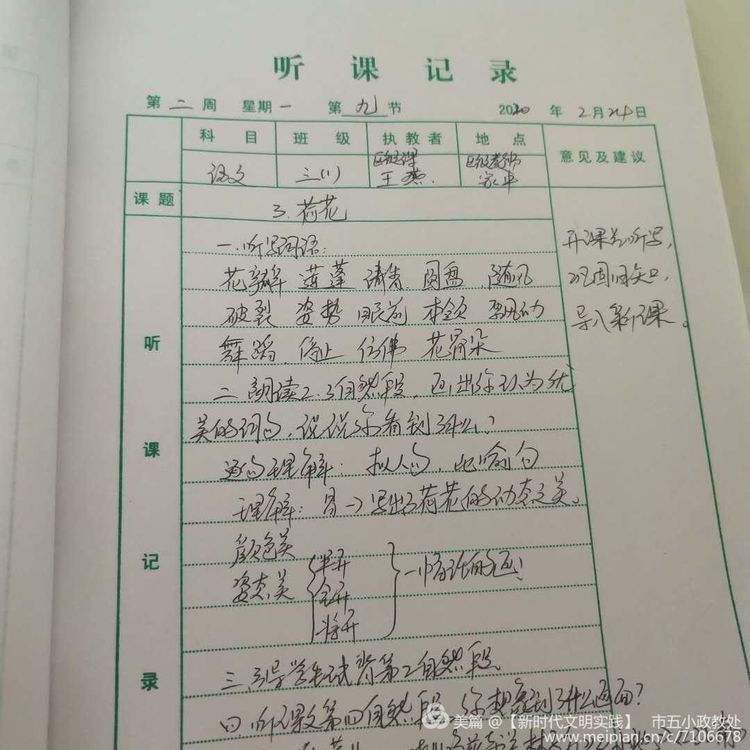 听课记录
第二周 星期一 第九节 2020年2月24日
科目 班级 执教者 地点 意见及建议
语文 三(1) 区级课 王燕 区级教师
课题 3.荷花
听课记录
一.听写词语:
花瓣 莲蓬 清香 圆盘
破裂 姿势 眼前 本领
舞蹈 停止 花骨朵
二.朗读2.3自然段,画出你认为优
美的词句,说说你看到了什么?
逐句理解:拟人句,比喻句
理解:冒→写出了荷花的动态之美。
颜色美
姿态美 半开 全开 将开 一幅活的画!
三.引导学生试背第2自然段
四.听课文第四自然段,你想象到了什么画面?
开课先听写,
巩固旧知,
导入新课。
美篇 @【新时代文明实践】 市五小政教处
www.meipian.cn/c/7106678